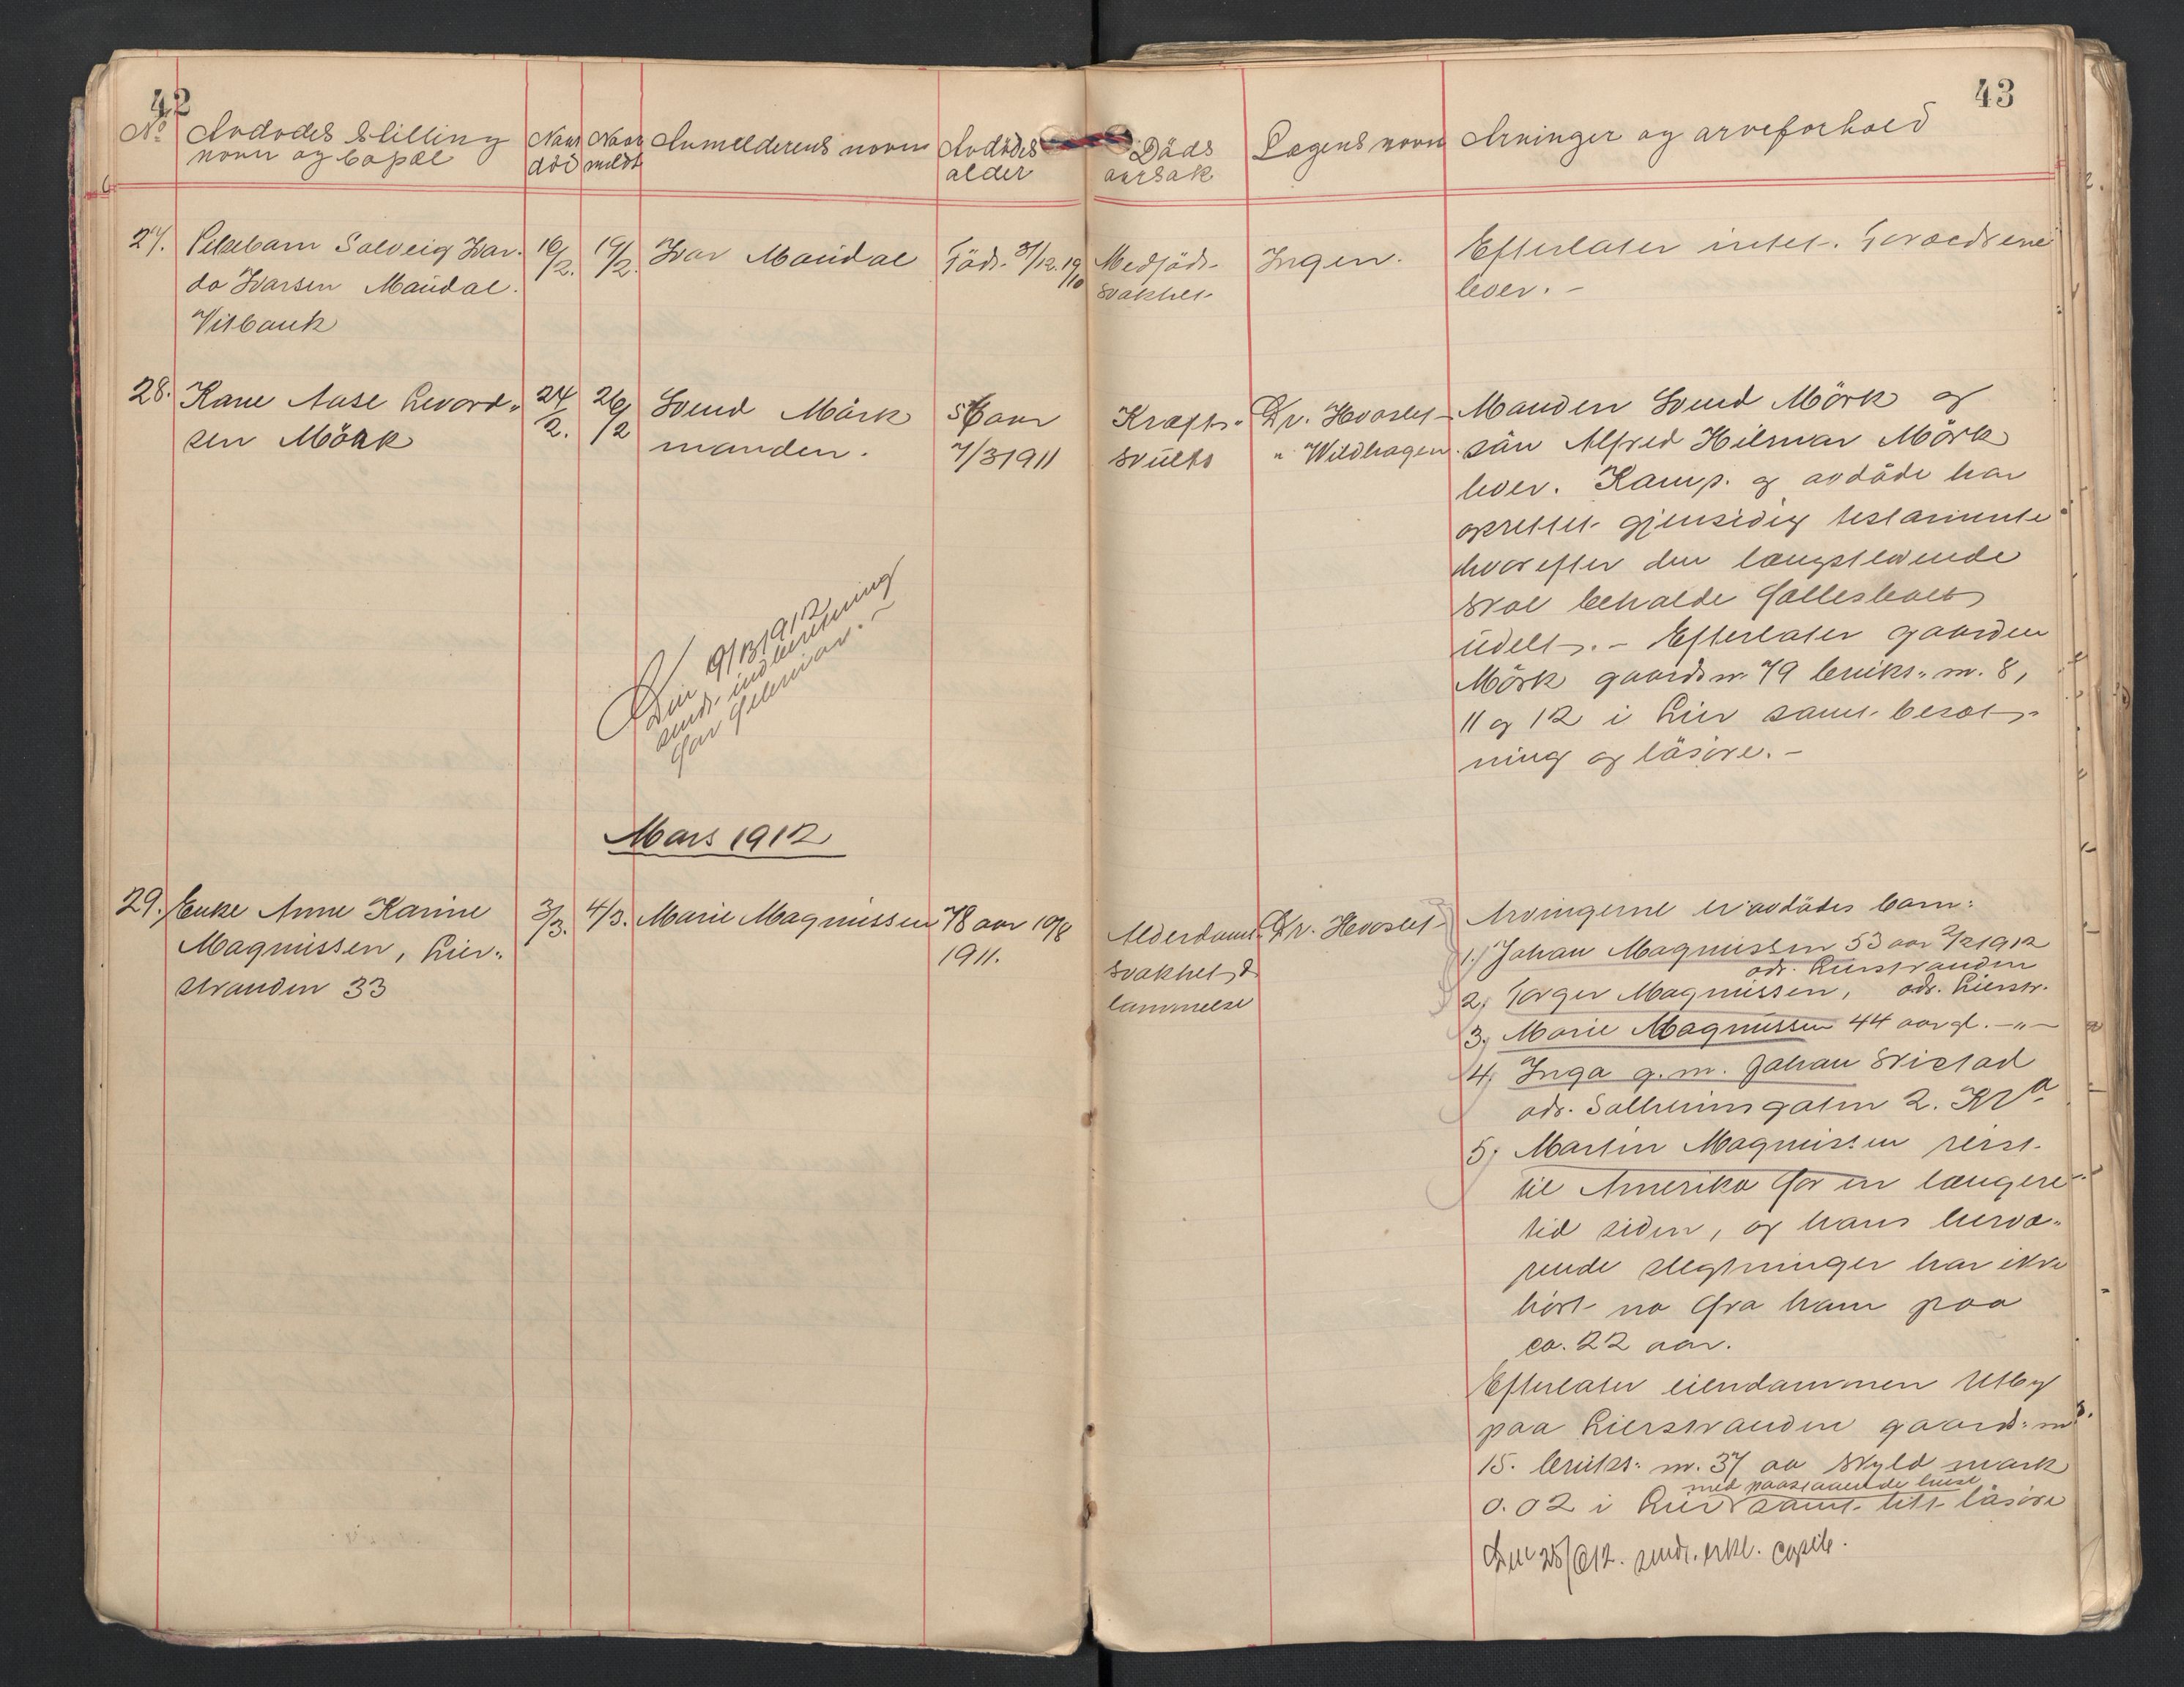 42
43
No Avdødes stilling
navn og bopæl
Naar
død
Naar
meldt
Anmelderens navn
Avdødes
alder
Døds
aarsak
Lægens navn
Arvinger og arveforhold
27. Pikebarn Solveig Ivar-
da Ivarsen Maúdal.
Vitbank
16/2.
19/2.
Ivar Maúdal
Född. 31/12. 19/10
Medfödt
svakhet
Ingen.
Efterlater intet. Foræld­rene
lever. -
28. Karen Aase Hevord-
sen Mörk
24/2.
26/2
Svend Mörk
manden.
5 aar
7/3 1911
Kræft-
svúlst
Dr. Hvoslef
" Wildhagen.
Manden Svend Mörk og
sön Alfred Hilmar Mörk
lever. Komp. og avdöde har
oprettet gjensidig testamente
hvorefter den længstlevende
skal beholde fællesboet
údelt. - Efterlater gaarden
Mörk gaardsnr. 79 brúks-nr. 8,
11 og 12 i Lier samt besæt-
ning og lösöre. -
Den 9/3 1912
sendt indberetning
for februar. -
Mars 1912
29. Enke Anne Karine
Magnússen, Lier-
stranden 33
3/3.
4/3.
Marie Magnússen
78 aar 10/8
1911.
Alderdoms-
svakhet &
lammelse
Dr. Hvoslef
Arvingerne er avdödes barn:
1.) Johan Magnússen 53 aar 2/2 1912
adr. Lierstranden
2) Torger Magnússen, adr. Lierstr.
3) Marie Magnússen 44 aar gl. -"-
4) Inga g. m. Johan Skistad
adr. Solheimsgaten 2. Kra
5) Martin Magnússen reist
til Amerika for en længere
tid siden, og hans herva-
rende slegtninger har ikke
hört no fra ham paa
ca. 22 aar.
Efterlater eiendommen Utby
paa Lierstranden gaards-nr.
15. brúks-nr. 37 av skyld mark
med paastaaende húse
0.02 i Lier samt litt lösöre
Den 25/6 12. sendt erkl.